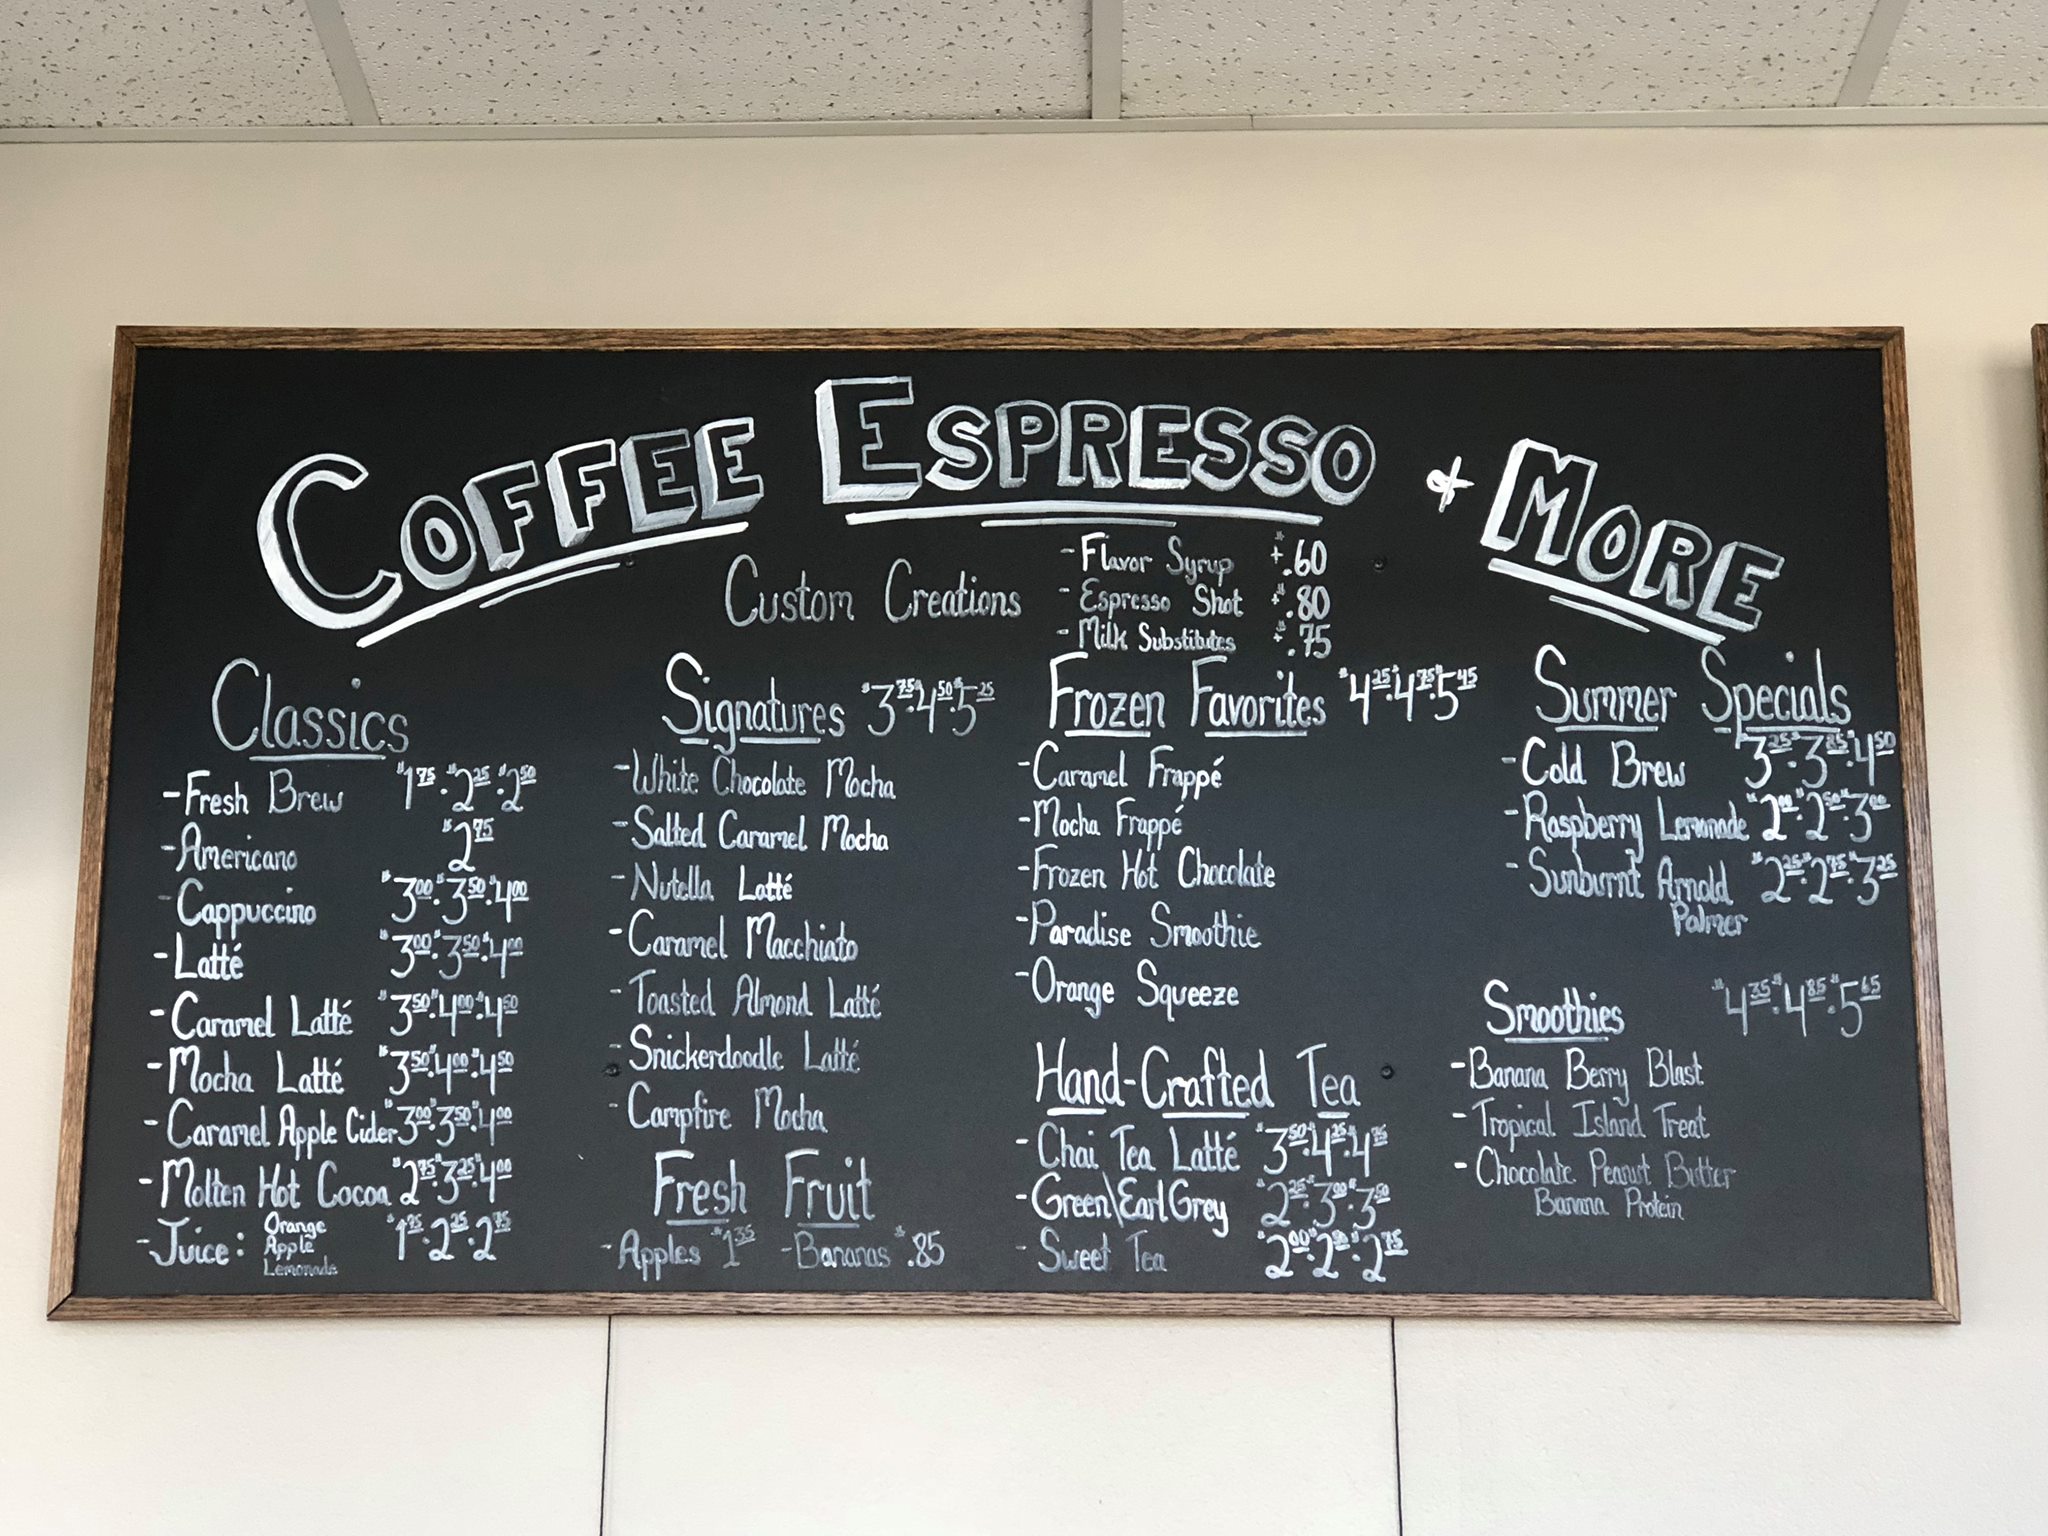 COFFEE ESPRESSO & MORE
Custom Creations
- Flavor Syrup $+.60
- Espresso Shot $+.80
- Milk Substitutes $+.75
Classics
- Fresh Brew $1.75 · $2.25 · $2.50
- Americano $2.75
- Cappuccino $3.00 · $3.50 · $4.00
- Latté $3.00 · $3.50 · $4.00
- Caramel Latté $3.50 · 4.00 · 4.50
- Mocha Latté $3.50 · $4.00 · 4.50
- Caramel Apple Cider $3.00 · $3.50 · $4.00
- Molten Hot Cocoa $2.75 · $3.25 · $4.00
- Juice: Orange $1.75 · 2.25 · 2.75
Apple
Lemonade
Signatures $3.75 · $4.50 · $5.25
- White Chocolate Mocha
- Salted Caramel Mocha
- Nutella Latté
- Caramel Macchiato
- Toasted Almond Latté
- Snickerdoodle Latté
- Campfire Mocha
Fresh Fruit
- Apples $1.35 - Bananas $.85
Frozen Favorites $4.25 · $4.75 · $5.45
- Caramel Frappé
- Mocha Frappé
- Frozen Hot Chocolate
- Paradise Smoothie
- Orange Squeeze
Hand-Crafted Tea
- Chai Tea Latté $3.50 · $4.25 · $4.75
- Green\Earl Grey $2.25 · $3.00 · $3.50
- Sweet Tea $2.00 · $2.50 · $2.75
Summer Specials
- Cold Brew $3.25 · $3.85 · $4.50
- Raspberry Lemonade $2.00 · $2.50 · $3.00
- Sunburnt Arnold $2.25 · $2.75 · $3.25
Palmer
Smoothies $4.35 · $4.85 · $5.65
- Banana Berry Blast
- Tropical Island Treat
- Chocolate Peanut Butter
Banana Protein